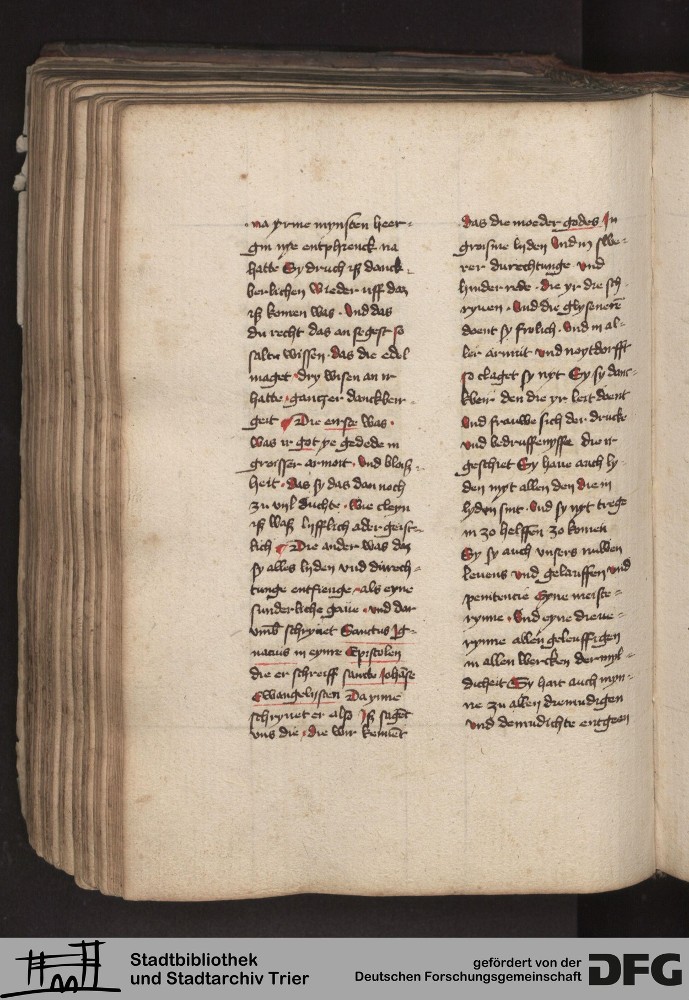 na yrme mynsten heer=
gin nye entphrenck na
hatte Sy druch iß danck=
berlichen Wieder uff daz
iß komen was. Und das
du recht das an segest so
saltu wissen. das die edel
maget dry wisen an ir
hatte gantzer danckber
geit Die eirste was.
was ir got ye gedede in
groisser armoit. Und bloiß=
heit. das sy das dan noch
zu vil duchte. Wie cleyn
iß waß lyfflich ader geist=
lich Die ander was daz
sy alles lyden vnd durech=
tunge entfienge als eyne
sunderliche gaue. vnd dar
vmb schryuet Sanctus Ig=
natius in eynre Epistolen
die er schreiff sancto Johanse
Ewangelisten Da ynne
schryuet er also Iß saget
vns die. die wir kennet
das die moeder godes In
groisme lyden Und in swe=
rer durechtunge Und
hinder rede. die yr die sch
ryuen. Und die glysenere
doent sy frolich. Und in al=
ler armut vnd noytdorfft
so claget sy nyt Sy sy danc=
kber den die yr leit doent
Und frauwe sich der drucke
vnd bedruffenysse die ir
geschiet Sy haue auch ly=
den myt allen den die in
lyden sint. Und sy nyt trege
in zo helffen zo komen
Sy sy auch vnsers nuwen
leuens vnd gelauffen vnd
penitencie Eyne meiste=
rynne. Und eyne diene=
rynne allen geleuffigen
in allen wercken der myl=
dicheit Sy hait auch myn=
ne zu allen diemudigen
vnd demudichte entgeen
Stadtbibliothek
und Stadtarchiv Trier
gefördert von der
Deutschen Forschungsgemeinschaft
DFG